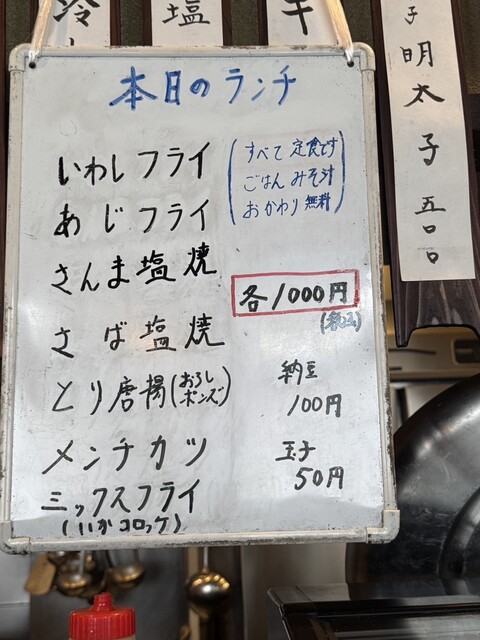 塩
子 明太子 五〇〇
本日のランチ
いわしフライ
あじフライ
さんま塩焼
さば塩焼
とり唐揚(おろしポンズ)
メンチカツ
ミックスフライ
(いかコロッケ)
(すべて定食です
ごはんみそ汁
おかわり無料)
各1000円
(税込)
納豆
100円
玉子
50円